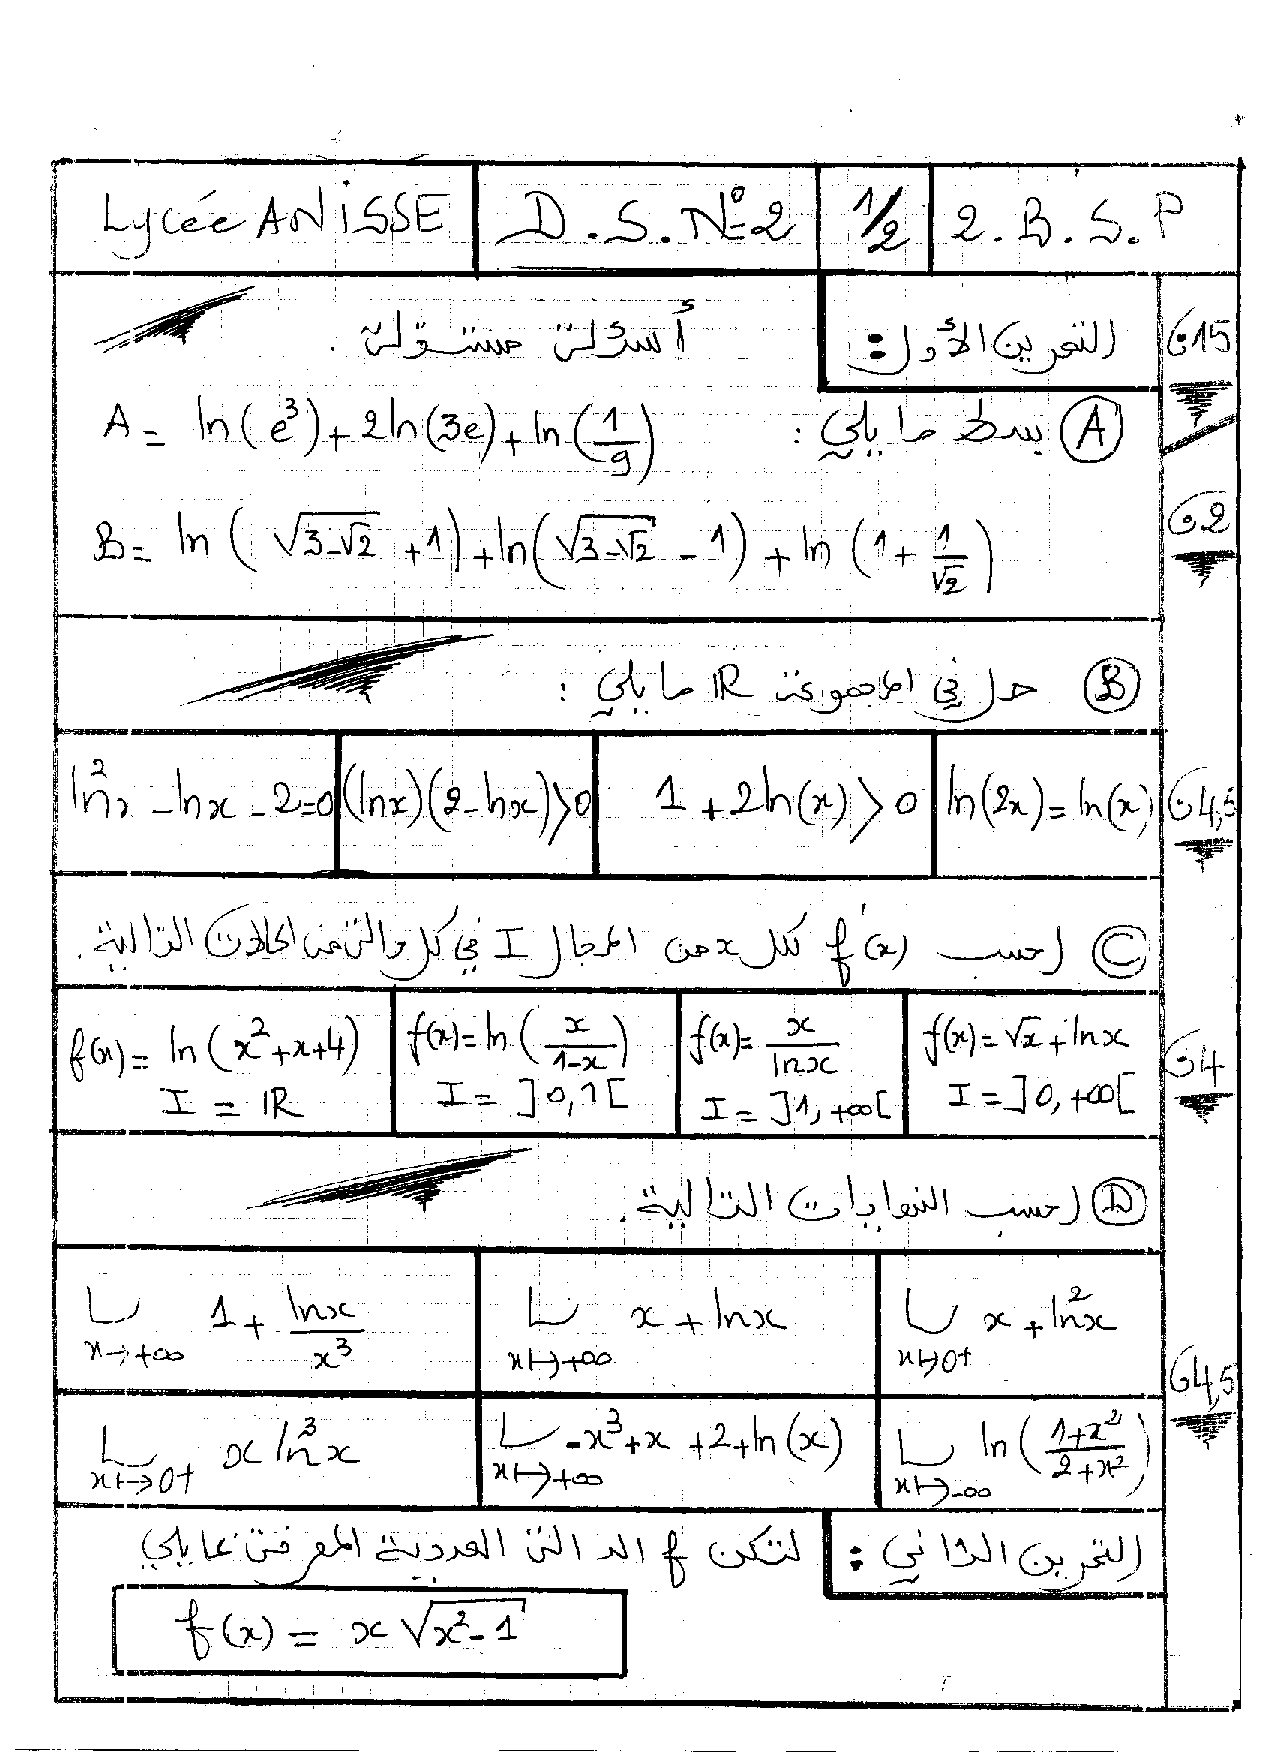 Lycée ANISSE D.S.N°=2 1/2 2.B.S.P
التمرين الأول: أسئلة مستقلة. 15
Ⓐ بسط ما يلي: A = ln(e³) + 2ln(3e) + ln(1/9)
B = ln(√(3-√2) + 1) + ln(√(3-√2) - 1) + ln(1 + 1/√2) 2
Ⓑ حل في المجموعة IR ما يلي:
ln²x - lnx - 2 = 0 (lnx)(2 - lnx) > 0 1 + 2ln(x) > 0 ln(2x) = ln(x) 4,5
Ⓒ احسب f'(x) لكل x من المجال I في كل حالة من الحالات التالية.
f(x) = ln(x² + x + 4) f(x) = ln(x/(1-x)) f(x) = x/lnx f(x) = √x + lnx 4
I = IR I = ]0,1[ I = ]1,+∞[ I = ]0,+∞[
Ⓓ احسب النهايات التالية.
L 1 + lnx/x³ L x + lnx L x + ln²x
x→+∞ x↦+∞ x↦0+
4,5
L x ln³x L -x³ + x + 2 + ln(x) L ln((1+x²)/(2+x²))
x↦0+ x↦+∞ x↦-∞
التمرين الثاني: لتكن f الدالة العددية المعرفة بما يلي
f(x) = x√(x²-1)